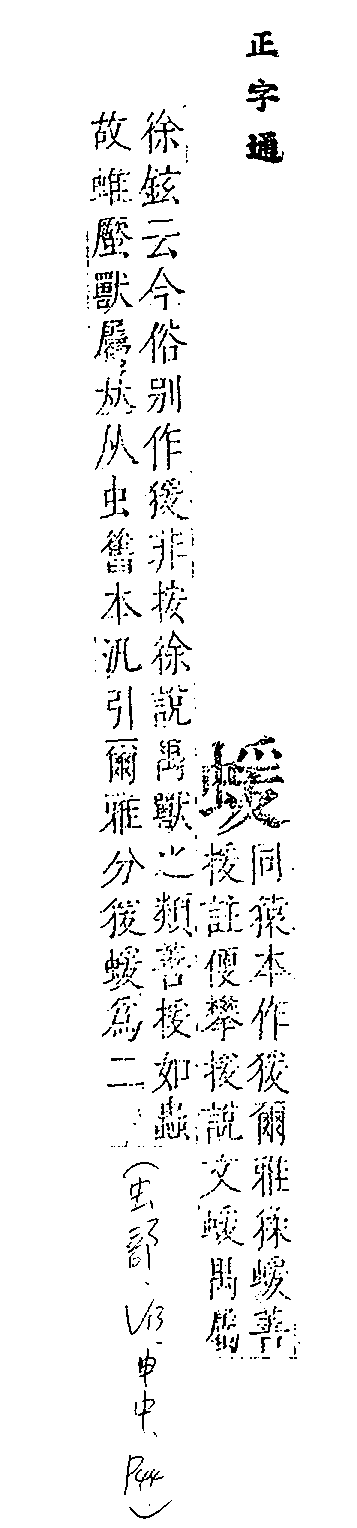 正字通
蝯
同猿本作猨爾雅猱蝯善
援註便攀援說文蝯禺屬
徐鉉云今俗别作猨非按徐說禺獸之類善援如蟲
故蜼玃獸屬𠀤从虫舊本汎引爾雅分猨蝯爲二
（虫部、V13、申中、P44.）